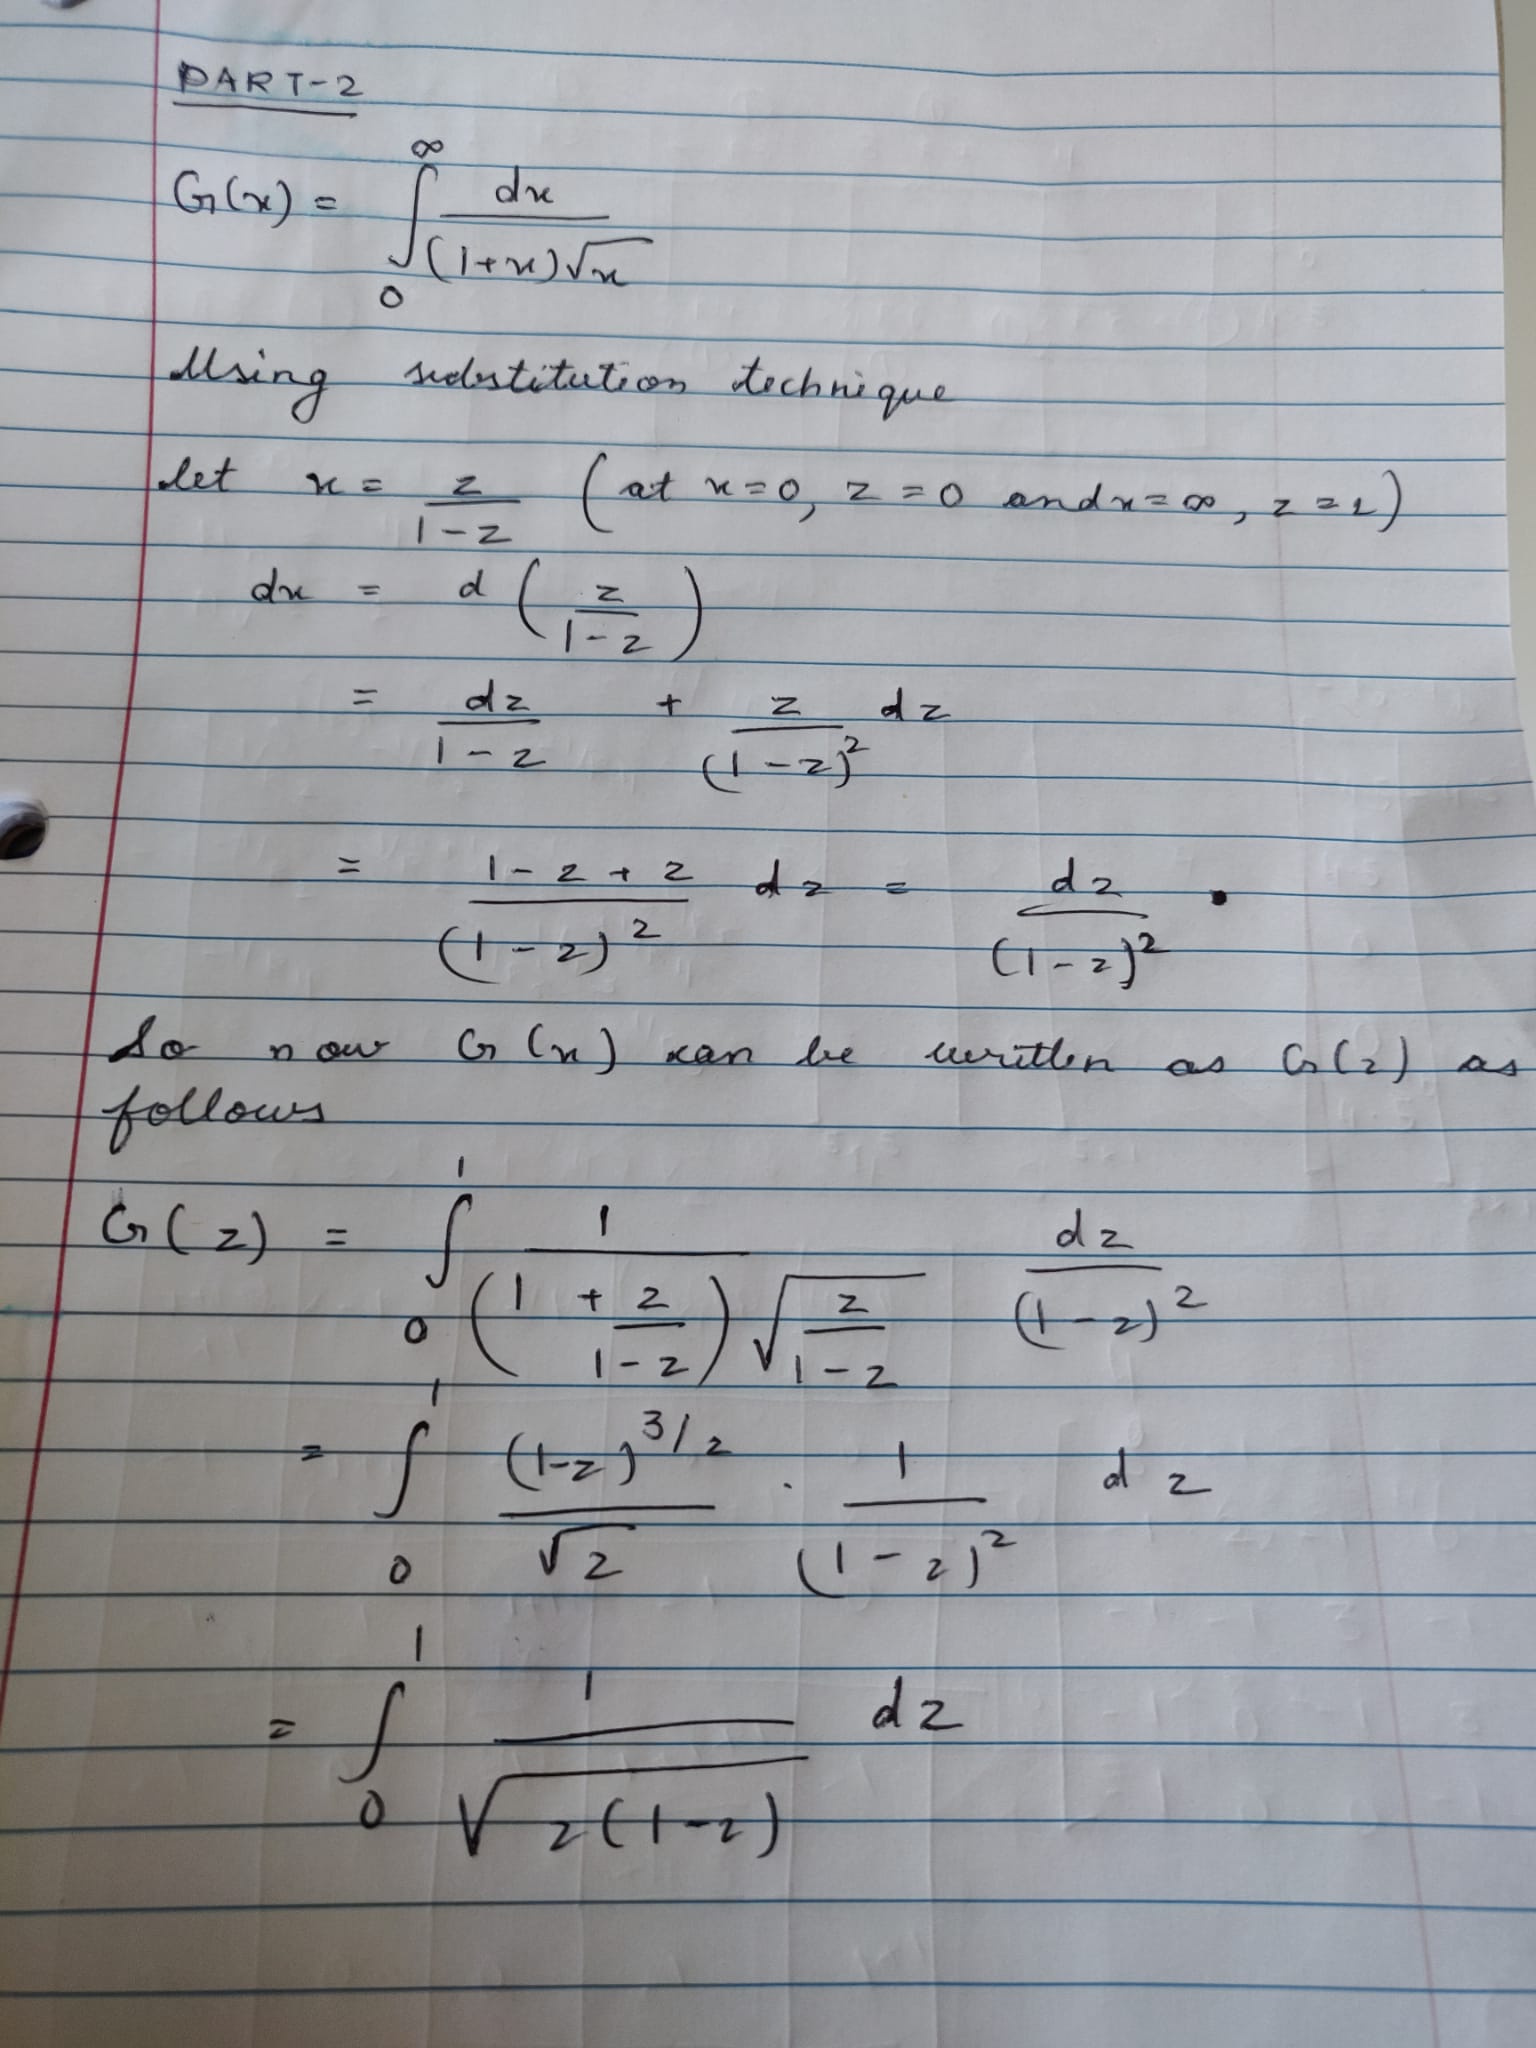 PART-2
G(x) = ∫₀^∞ dx / ((1+x)√x)
Using substitution technique
let x = z/(1-z) (at x=0, z=0 and x=∞, z=1)
dx = d (z/(1-z))
= dz/(1-z) + z/(1-z)² dz
= (1-z+z)/(1-z)² dz = dz/(1-z)² .
So now G(x) can be written as G(z) as
follows
G(z) = ∫₀¹ 1/((1 + z/(1-z)) √(z/(1-z))) dz/(1-z)²
= ∫₀¹ (1-z)^(3/2)/√z . 1/(1-z)² dz
= ∫₀¹ 1/√(z(1-z)) dz